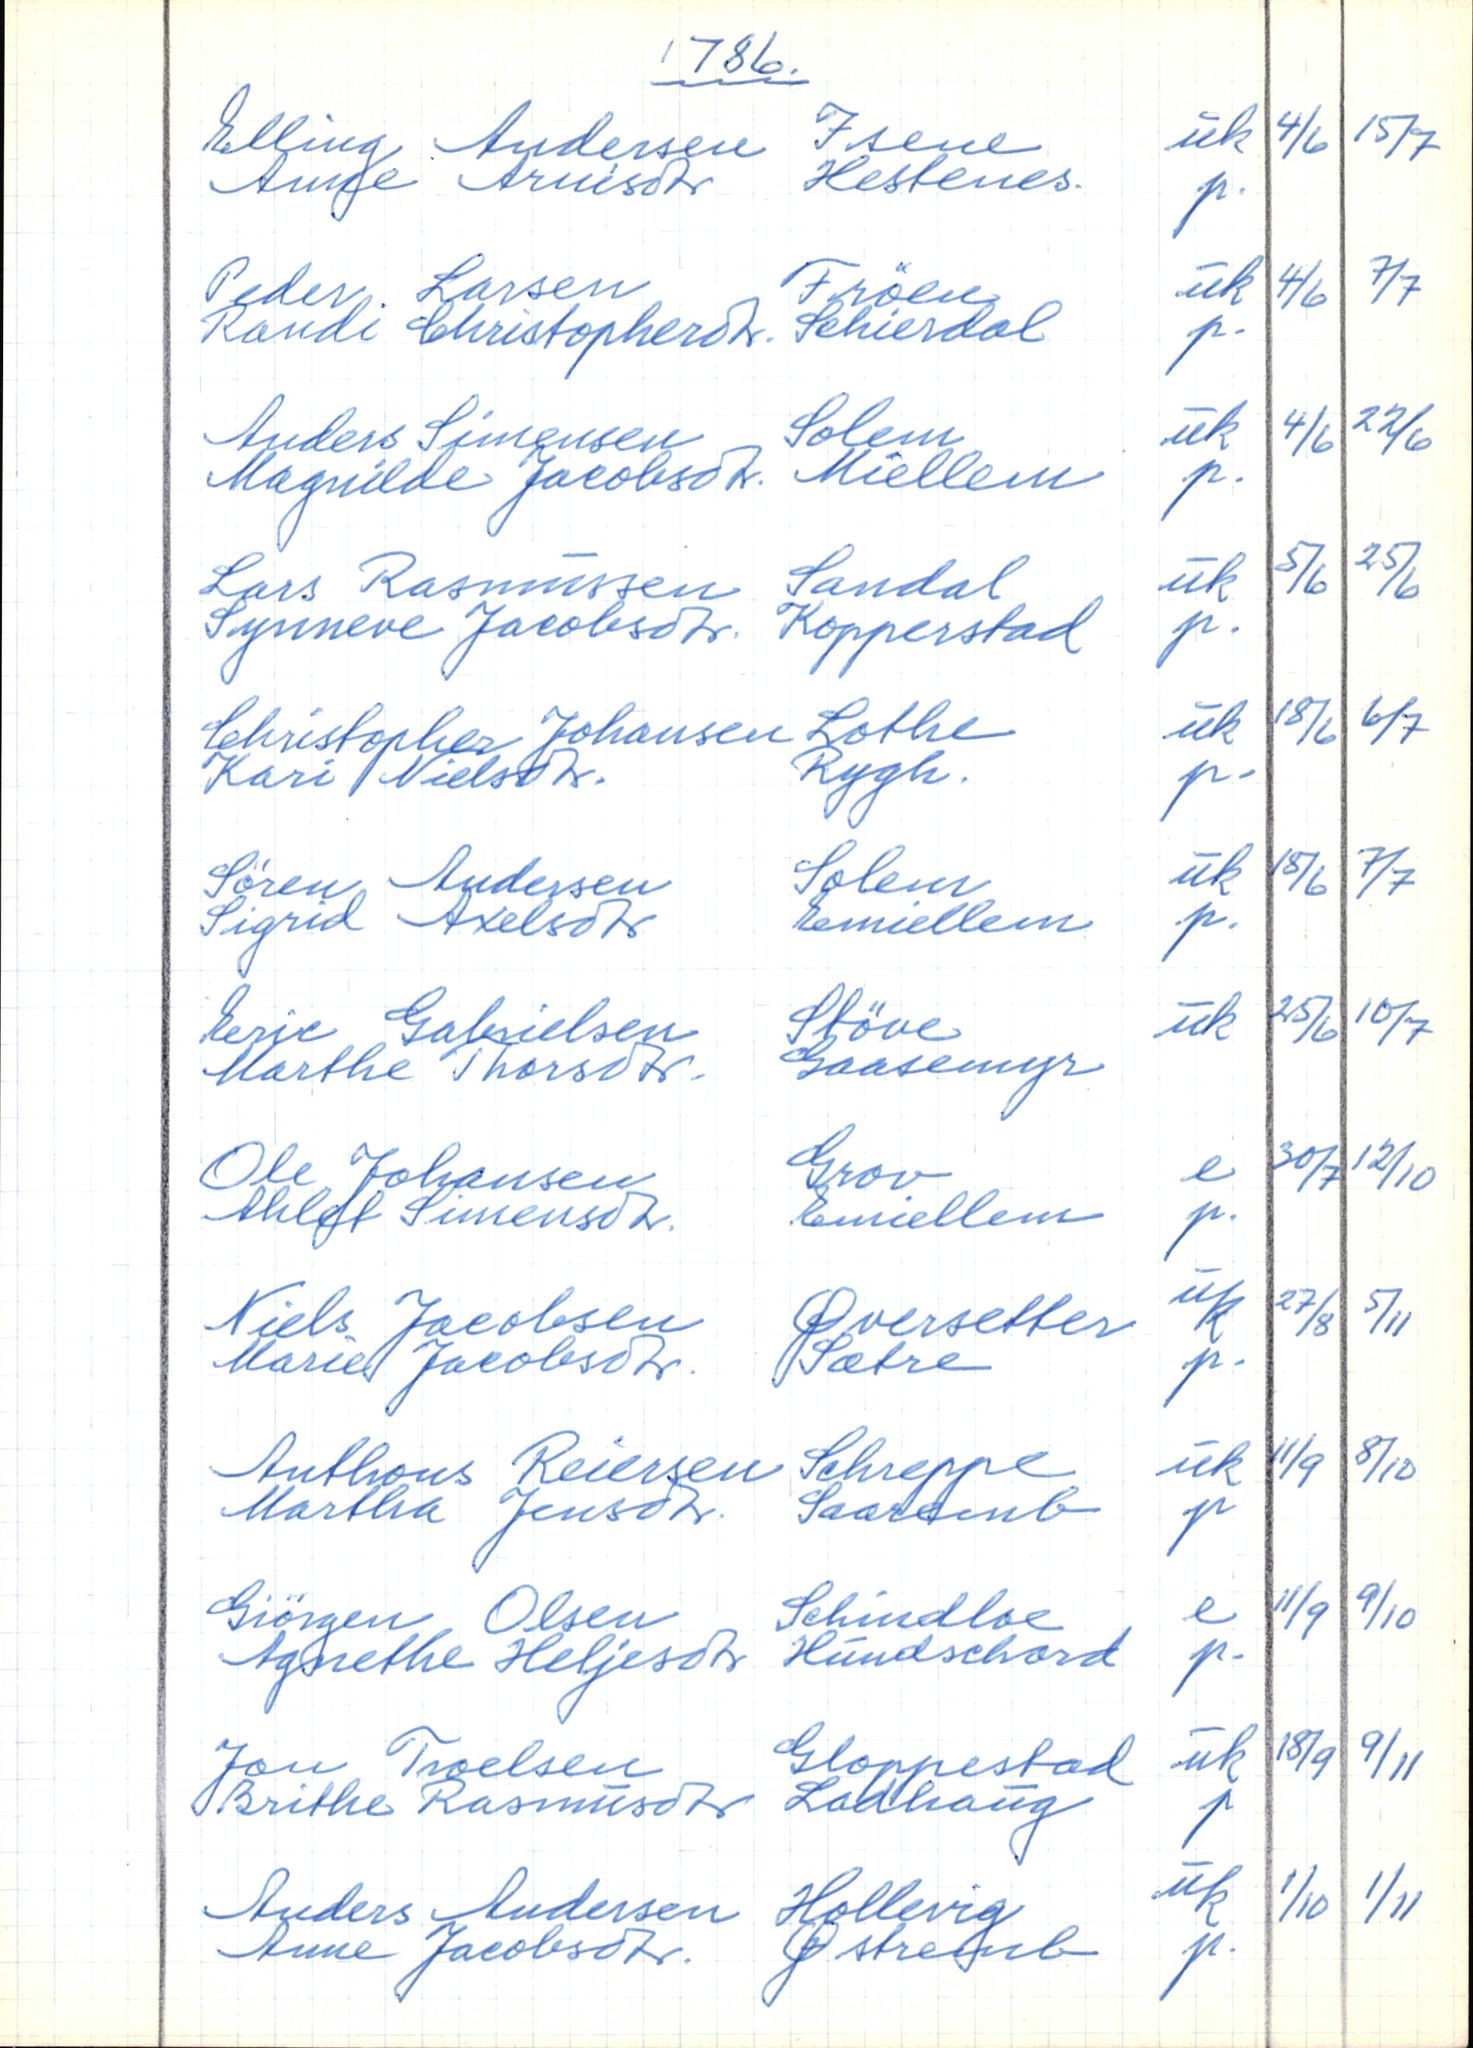 1786.
Elling Andersen Isene uk 4/6 15/7
Anne Arnisdtr Hestenes. p.
Peder. Larsen Fröen uk 4/6 7/7
Randi Christopherdtr. Schierdal p.
Anders Simensen Solem uk 4/6 22/6
Magnilde Jacobsdtr. Miellem p.
Lars Rasmussen Sandal uk 5/6 25/6
Synneve Jacobsdtr. Kopperstad p.
Christopher Johansen Lothe uk 18/6 6/7
Kari Nielsdtr. Rygh. p.
Sören Andersen Solem uk 18/6 7/7
Sigrid Axelsdtr Emiellem p.
Eric Gabrielsen Stöve uk 25/6 10/7
Marthe Thorsdtr. Gaasemyr
Ole Johansen Grov e 30/7 12/10
Ahlet Simensdtr. Emiellem p.
Niels Jacobsen Øversetter uk 27/8 5/11
Marie Jacobsdtr. Sætre p.
Anthons Reiersen Schreppe uk 11/9 8/10
Martha Jensdtr. p
Giörgen Olsen Schindloe e 11/9 9/10
Agnethe Heljesdtr Hundschard p.
Jon Troelsen Gloppestad uk 18/9 9/11
Brithe Rasmusdtr Ladhaug p
Anders Andersen Hollevig uk 1/10 1/11
Anne Jacobsdtr. Østremb p.